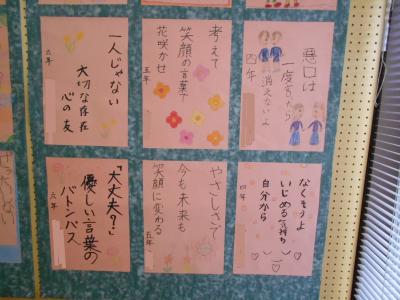 悪口は
一度言たら
消えないよ
四年
考えて
笑顔の言葉
花咲かせ
五年
一人じゃない
大切な存在
心の友
六年
なくそうよ
いじめる気持ち
自分から
四年
やさしさで
今も未来も
笑顔に変わる
五年
「大丈夫?」
優しい言葉の
バトンパス
六年